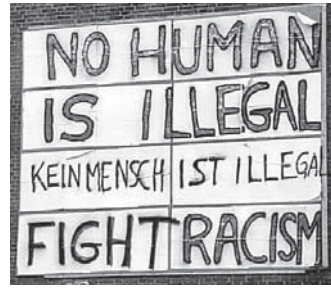 NO HUMAN
IS ILLEGAL
KEIN MENSCH IST ILLEGAL
FIGHT RACISM